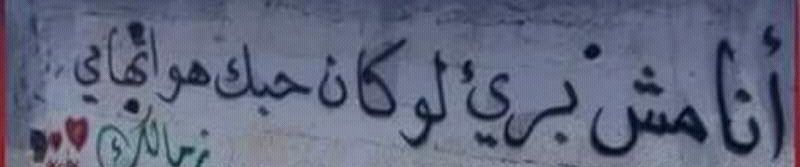 أنا مش بريئ لو كان حبك هو اتهامي
زمالكاوي